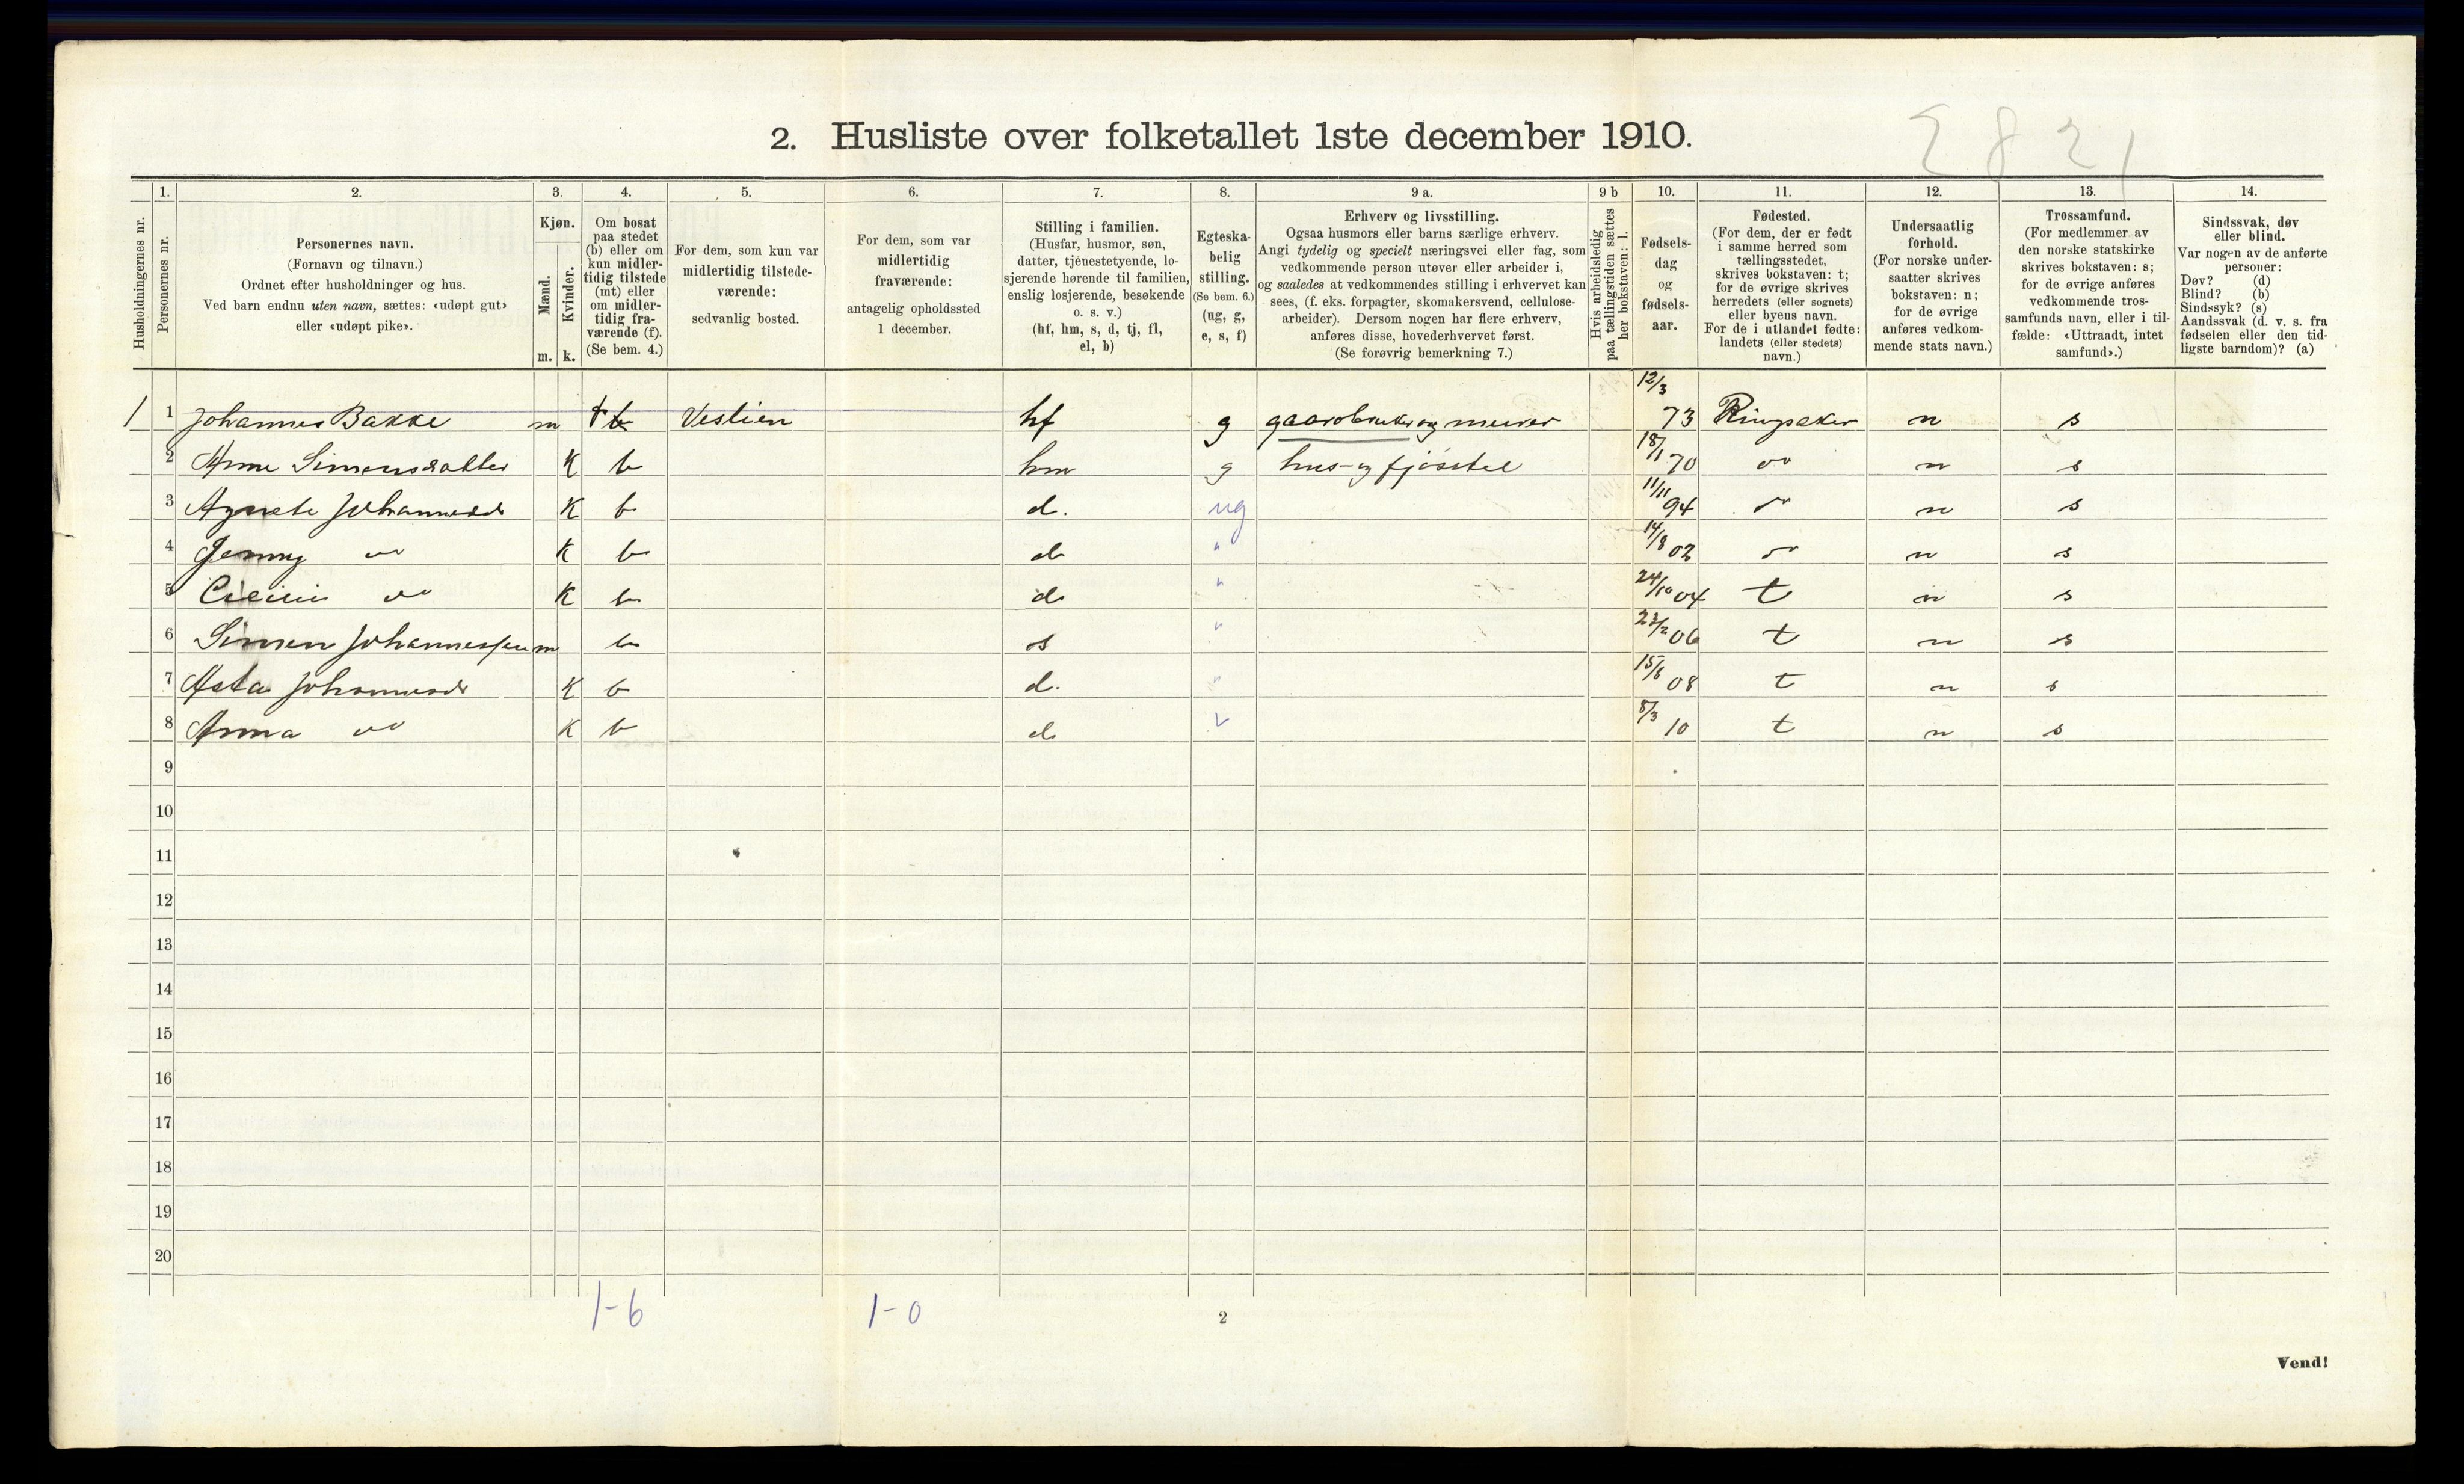 2. Husliste over folketallet 1ste december 1910.
2821
Husholdningernes nr.
1.
Personernes nr.
2.
Personernes navn.
(Fornavn og tilnavn.)
Ordnet efter husholdninger og hus.
Ved barn endnu uten navn, sættes: «udøpt gut»
eller «udøpt pike».
3.
Kjøn.
Mænd.
Kvinder.
m. k.
4.
Om bosat
paa stedet
(b) eller om
kun midler-
tidig tilstede
(mt) eller
om midler-
tidig fra-
værende (f).
(Se bem. 4.)
5.
For dem, som kun var
midlertidig tilstede-
værende:
sedvanlig bosted.
6.
For dem, som var
midlertidig
fraværende:
antagelig opholdssted
1 december.
7.
Stilling i familien.
(Husfar, husmor, søn,
datter, tjenestetyende, lo-
sjerende hørende til familien,
enslig losjerende, besøkende
o. s. v.)
(hf, hm, s, d, tj, fl,
el, b)
8.
Egteska-
belig
stilling.
(Se bem. 6.)
(ug, g,
e, s, f)
9 a.
Erhverv og livsstilling.
Ogsaa husmors eller barns særlige erhverv.
Angi tydelig og specielt næringsvei eller fag, som
vedkommende person utøver eller arbeider i,
og saaledes at vedkommendes stilling i erhvervet kan
sees, (f. eks. forpagter, skomakersvend, cellulose-
arbeider). Dersom nogen har flere erhverv,
anføres disse, hovederhvervet først.
(Se forøvrig bemerkning 7.)
9 b
Hvis arbeidsledig
paa tællingstiden sættes
her bokstaven: l.
10.
Fødsels-
dag
og
fødsels-
aar.
11.
Fødested.
(For dem, der er født
i samme herred som
tællingsstedet,
skrives bokstaven: t;
for de øvrige skrives
herredets (eller sognets)
eller byens navn.
For de i utlandet fødte:
landets (eller stedets)
navn.)
12.
Undersaatlig
forhold.
(For norske under-
saatter skrives
bokstaven: n;
for de øvrige
anføres vedkom-
mende stats navn.)
13.
Trossamfund.
(For medlemmer av
den norske statskirke
skrives bokstaven: s;
for de øvrige anføres
vedkommende tros-
samfunds navn, eller i til-
fælde: «Uttraadt, intet
samfund».)
14.
Sindssvak, døv
eller blind.
Var nogen av de anførte
personer:
Døv? (d)
Blind? (b)
Sindssyk? (s)
Aandssvak (d. v. s. fra
fødselen eller den tid-
ligste barndom)? (a)
1 1 Johannes Bakke m b Veslien hf g gaardbruker og murer 12/3 73 Ringsaker n s
2 Anne Simensdatter K b hm g hus- og fjösstel 18/1 70 do n s
3 Agnete Johannesd K b d. ug 11/11 94 do n s
4 Jenny do K b d " 14/8 02 do n s
5 do K b d " 24/10 04 t n s
6 Simen Johannessen m b s " 23/2 06 t n s
7 Asta Johannesd K b d. " 15/8 08 t n s
8 Anna do K b d " 8/3 10 t n s
9
10
11
12
13
14
15
16
17
18
19
20
1-6 1-0
2
Vend!